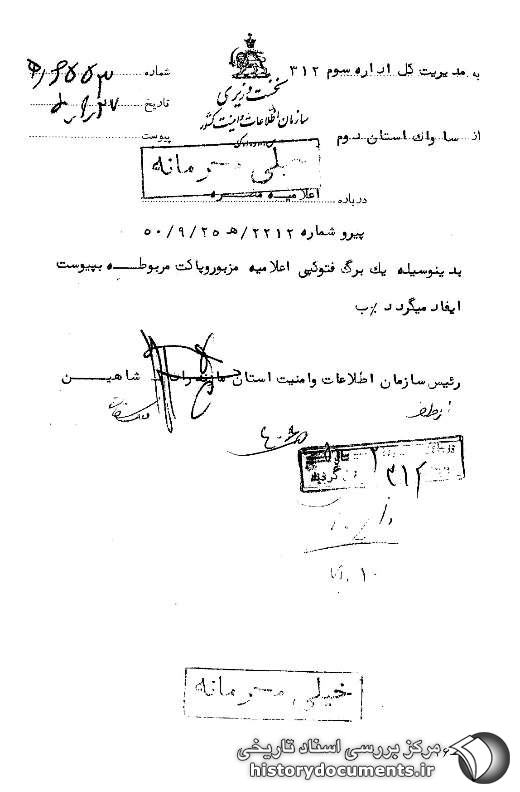 به مدیریت کل اداره سوم ۳۱۲
نخست وزیری
سازمان اطلاعات و امنیت کشور
شماره
تاریخ
پیوست
از ساواک استان دوم
خیلی محرمانه
درباره اعلامیه مضره
پیرو شماره ۲۲۱۲/ه ۵۰/۹/۲۵
بدینوسیله یک برگ فتوکپی اعلامیه مزبور و پاکت مربوطه بپیوست
ایفاد میگردد /ب
رئیس سازمان اطلاعات وامنیت استان مازندران شاهین
از طرف
۳۱۲
خیلی محرمانه
مرکز بررسی اسناد تاریخی
historydocuments.ir